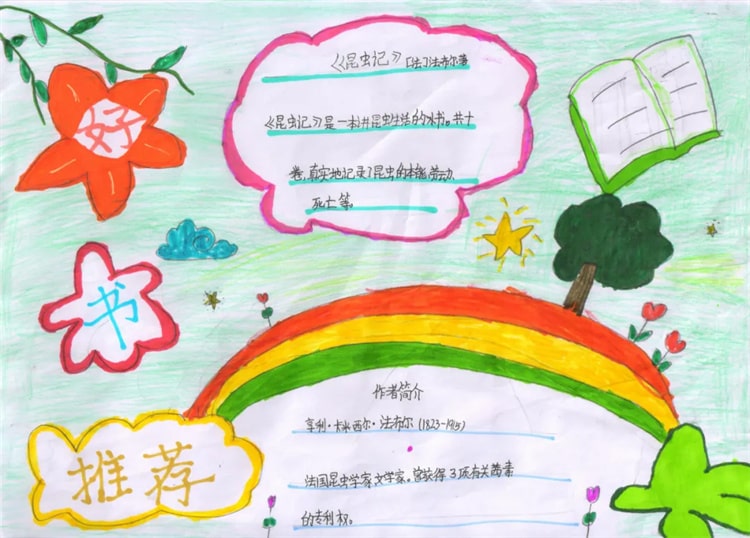 好
书
推荐
《昆虫记》[法]法布尔著
《昆虫记》是一本讲昆虫生活的书。共十
卷,真实地记录了昆虫的本能,劳动,
死亡等。
作者简介
亨利·卡米西尔·法布尔(1823-1915)
法国昆虫学家,文学家。曾获得3项有关茜素
的专利权。